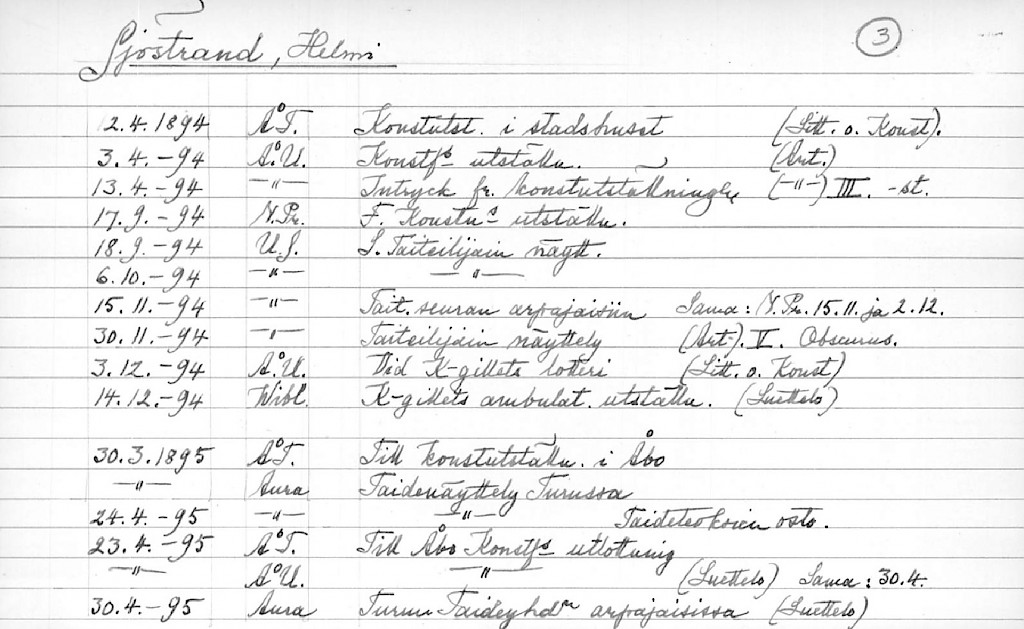 Sjöstrand, Helmi 3
12.4.1894 Å.T. Konstutst. i stadshuset (Litt. o. Konst).
3.4.-94 Å.U. Konstfs utställn. (Art.)
13.4.-94 -"- Intryck fr. konstutställningen (-"-) III. -st.
17.9.-94 N.Pr. F. Konstns utställn.
18.9.-94 U.S. S. Taiteilijain näytt.
6.10.-94 -"- -"-
15.11.-94 -"- Tait. seuran arpajaisiin Sama: N.Pr. 15.11. ja 2.12.
30.11.-94 -"- Taiteilijain näyttely (Art.). V. Obscurus.
3.12.-94 Å.U. Vid K-gillets lotteri (Litt. o. Konst)
14.12.-94 Wibl. K-gillets ambulat. utställn. (Luettelo)
30.3.1895 Å.T. Till konstutställn. i Åbo
-"- Aura Taidenäyttely Turussa
24.4.-95 -"- -"- Taideteoksien osto.
23.4.-95 Å.T. Till Åbo Konstfs utlottning
-"- Å.U. -"- (Luettelo) Sama: 30.4.
30.4.-95 Aura Turun Taideyhdn arpajaisissa (Luettelo)